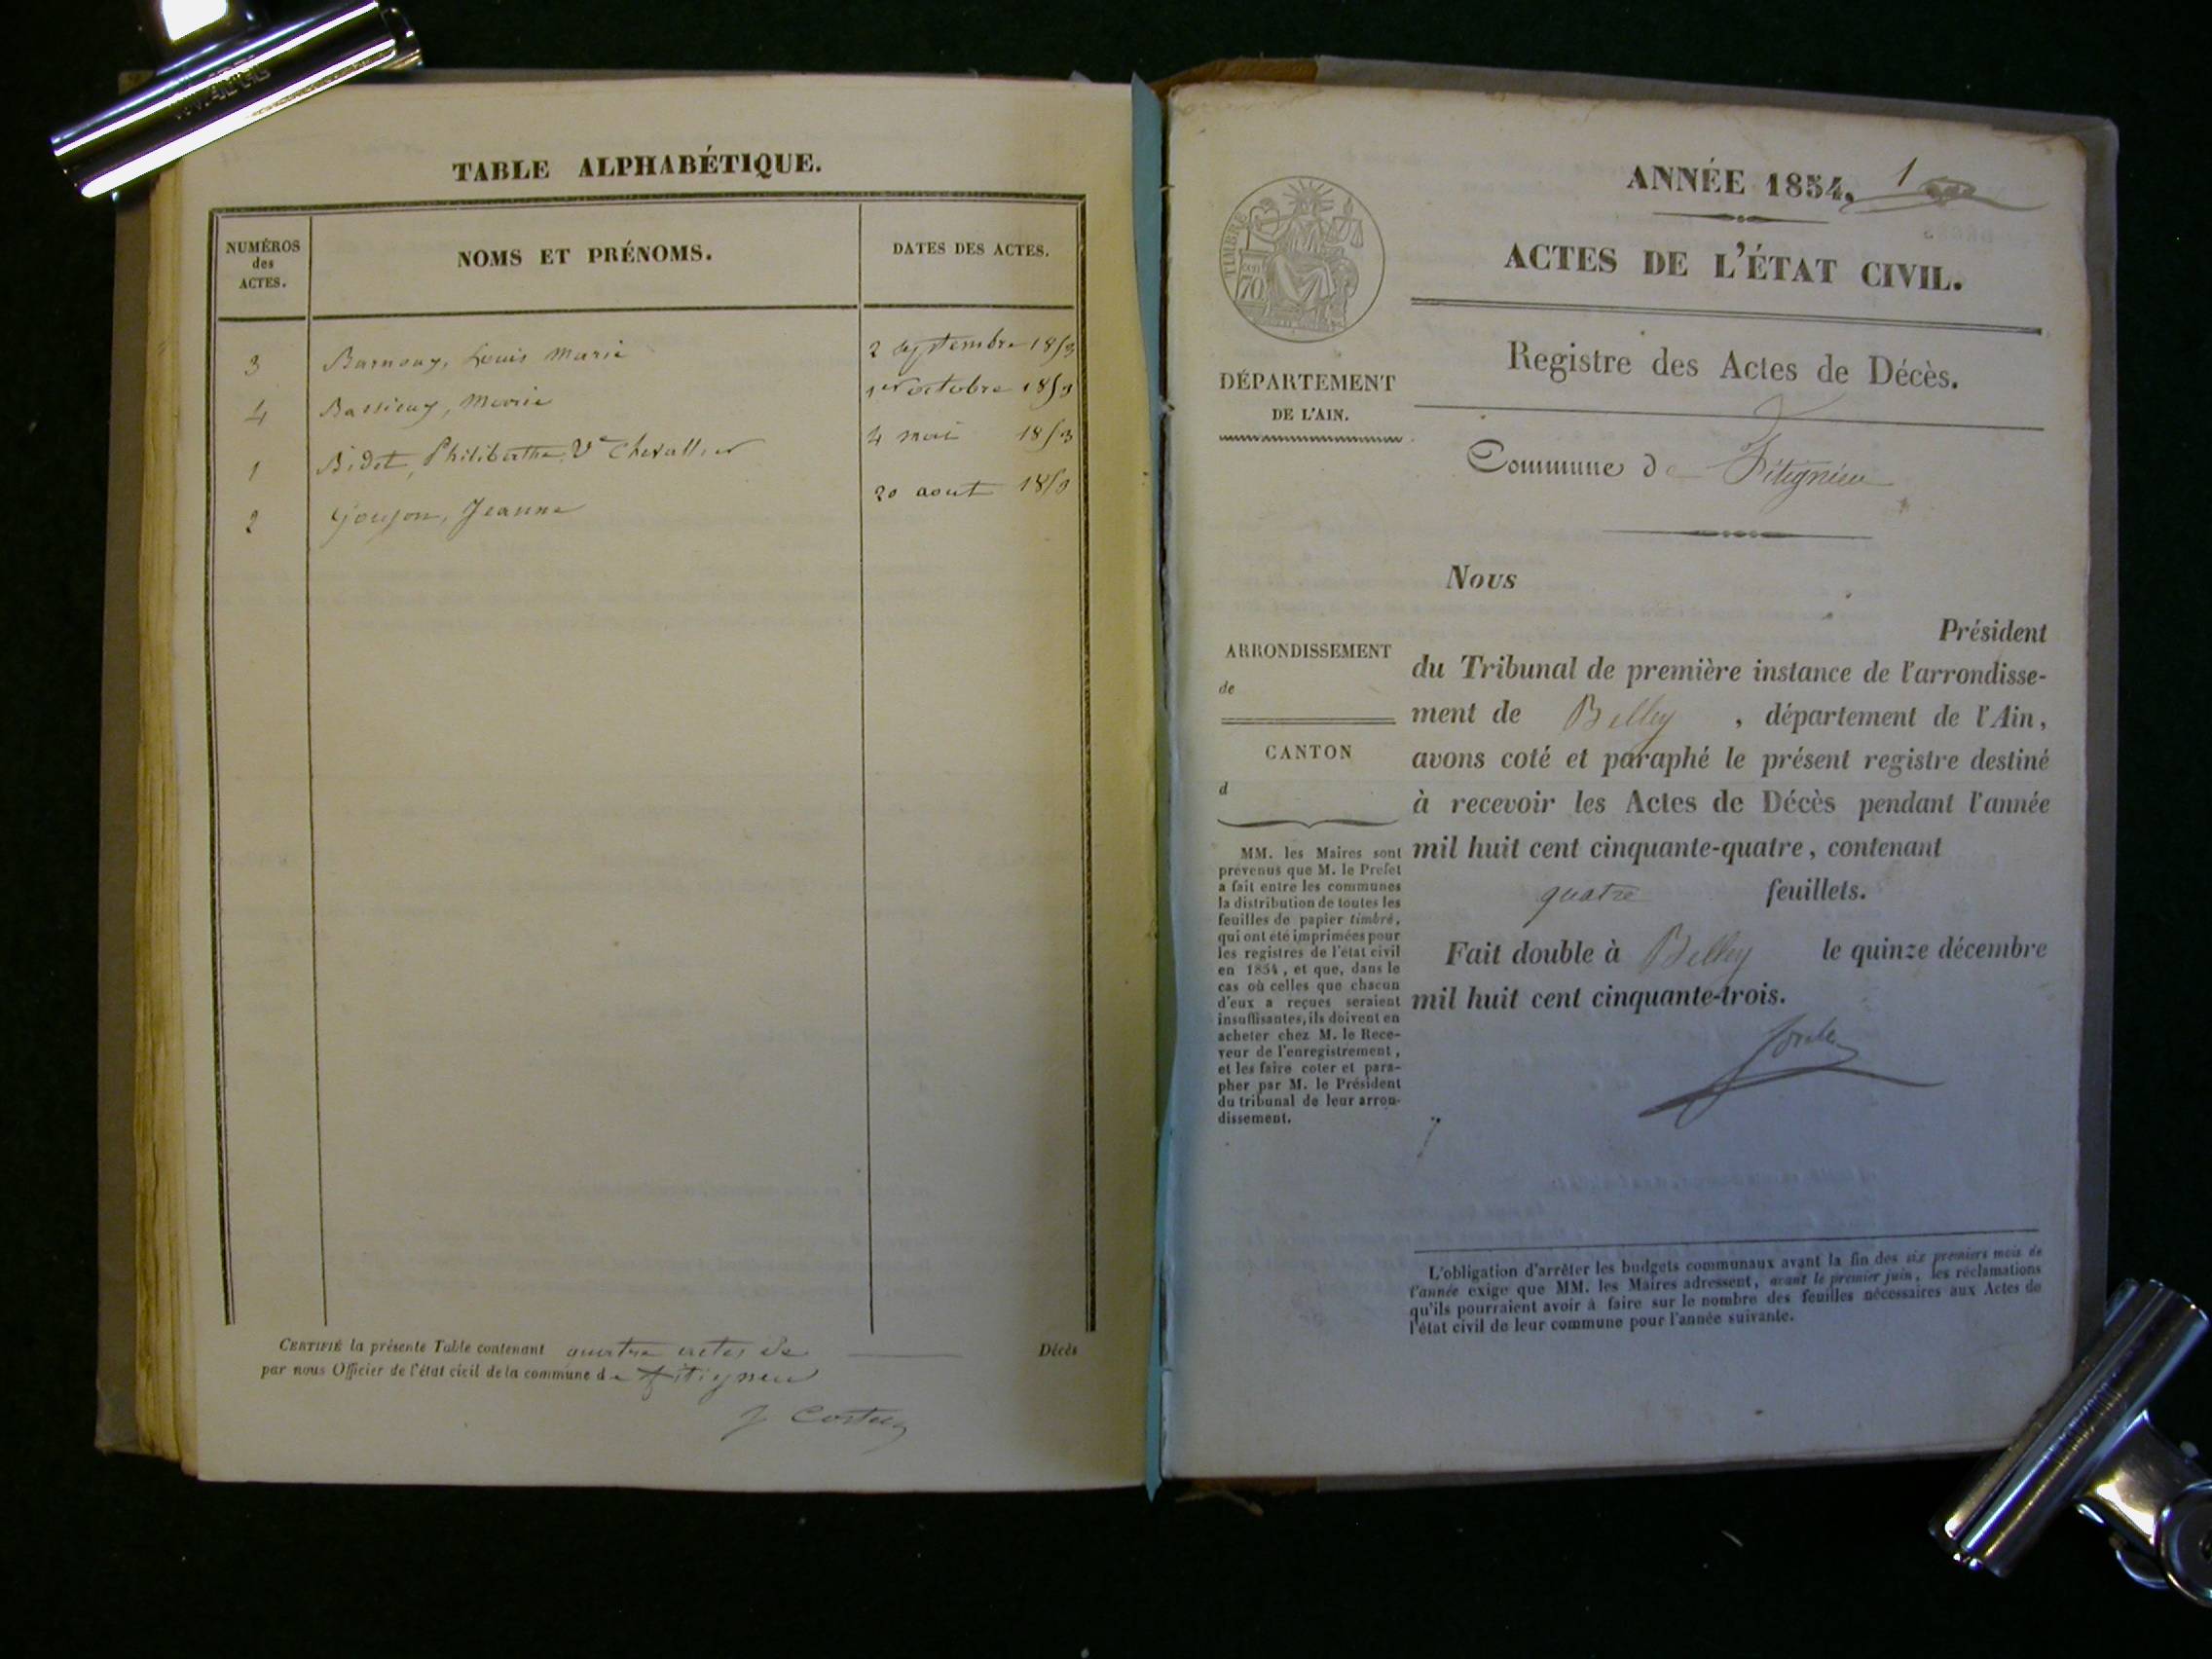 TABLE ALPHABÉTIQUE.
NUMÉROS
des
ACTES.
NOMS ET PRÉNOMS.
DATES DES ACTES.
3 Barnouy, Louis Marie 2 septembre 1853
4 Bassieux, Marie 1er octobre 1853
1 Bidet, Philiberthe Ve Chevallier 4 mai 1853
2 Goujon, Jeanne 20 aout 1853
CERTIFIÉ la présente Table contenant quatre actes de Décès
par nous Officier de l'état civil de la commune de fitigneu
ANNÉE 1854. 1
ACTES DE L'ÉTAT CIVIL.
TIMBRE
70
Registre des Actes de Décès.
DÉPARTEMENT
DE L'AIN.
Commune de Fitignieu
Nous
Président
ARRONDISSEMENT
de
CANTON
d
du Tribunal de première instance de l'arrondisse-
ment de Belley, département de l'Ain,
avons coté et paraphé le présent registre destiné
à recevoir les Actes de Décès pendant l'année
mil huit cent cinquante-quatre, contenant
quatre feuillets.
Fait double à Belley le quinze décembre
mil huit cent cinquante-trois.
MM. les Maires sont
prévenus que M. le Préfet
a fait entre les communes
la distribution de toutes les
feuilles de papier timbré,
qui ont été imprimées pour
les registres de l'état civil
en 1854, et que, dans le
cas où celles que chacun
d'eux a reçues seraient
insuffisantes, ils doivent en
acheter chez M. le Rece-
veur de l'enregistrement,
et les faire coter et para-
pher par M. le Président
du tribunal de leur arron-
dissement.
L'obligation d'arrêter les budgets communaux avant la fin des six premiers mois de
l'année exige que MM. les Maires adressent, avant le premier juin, les réclamations
qu'ils pourraient avoir à faire sur le nombre des feuilles nécessaires aux Actes de
l'état civil de leur commune pour l'année suivante.